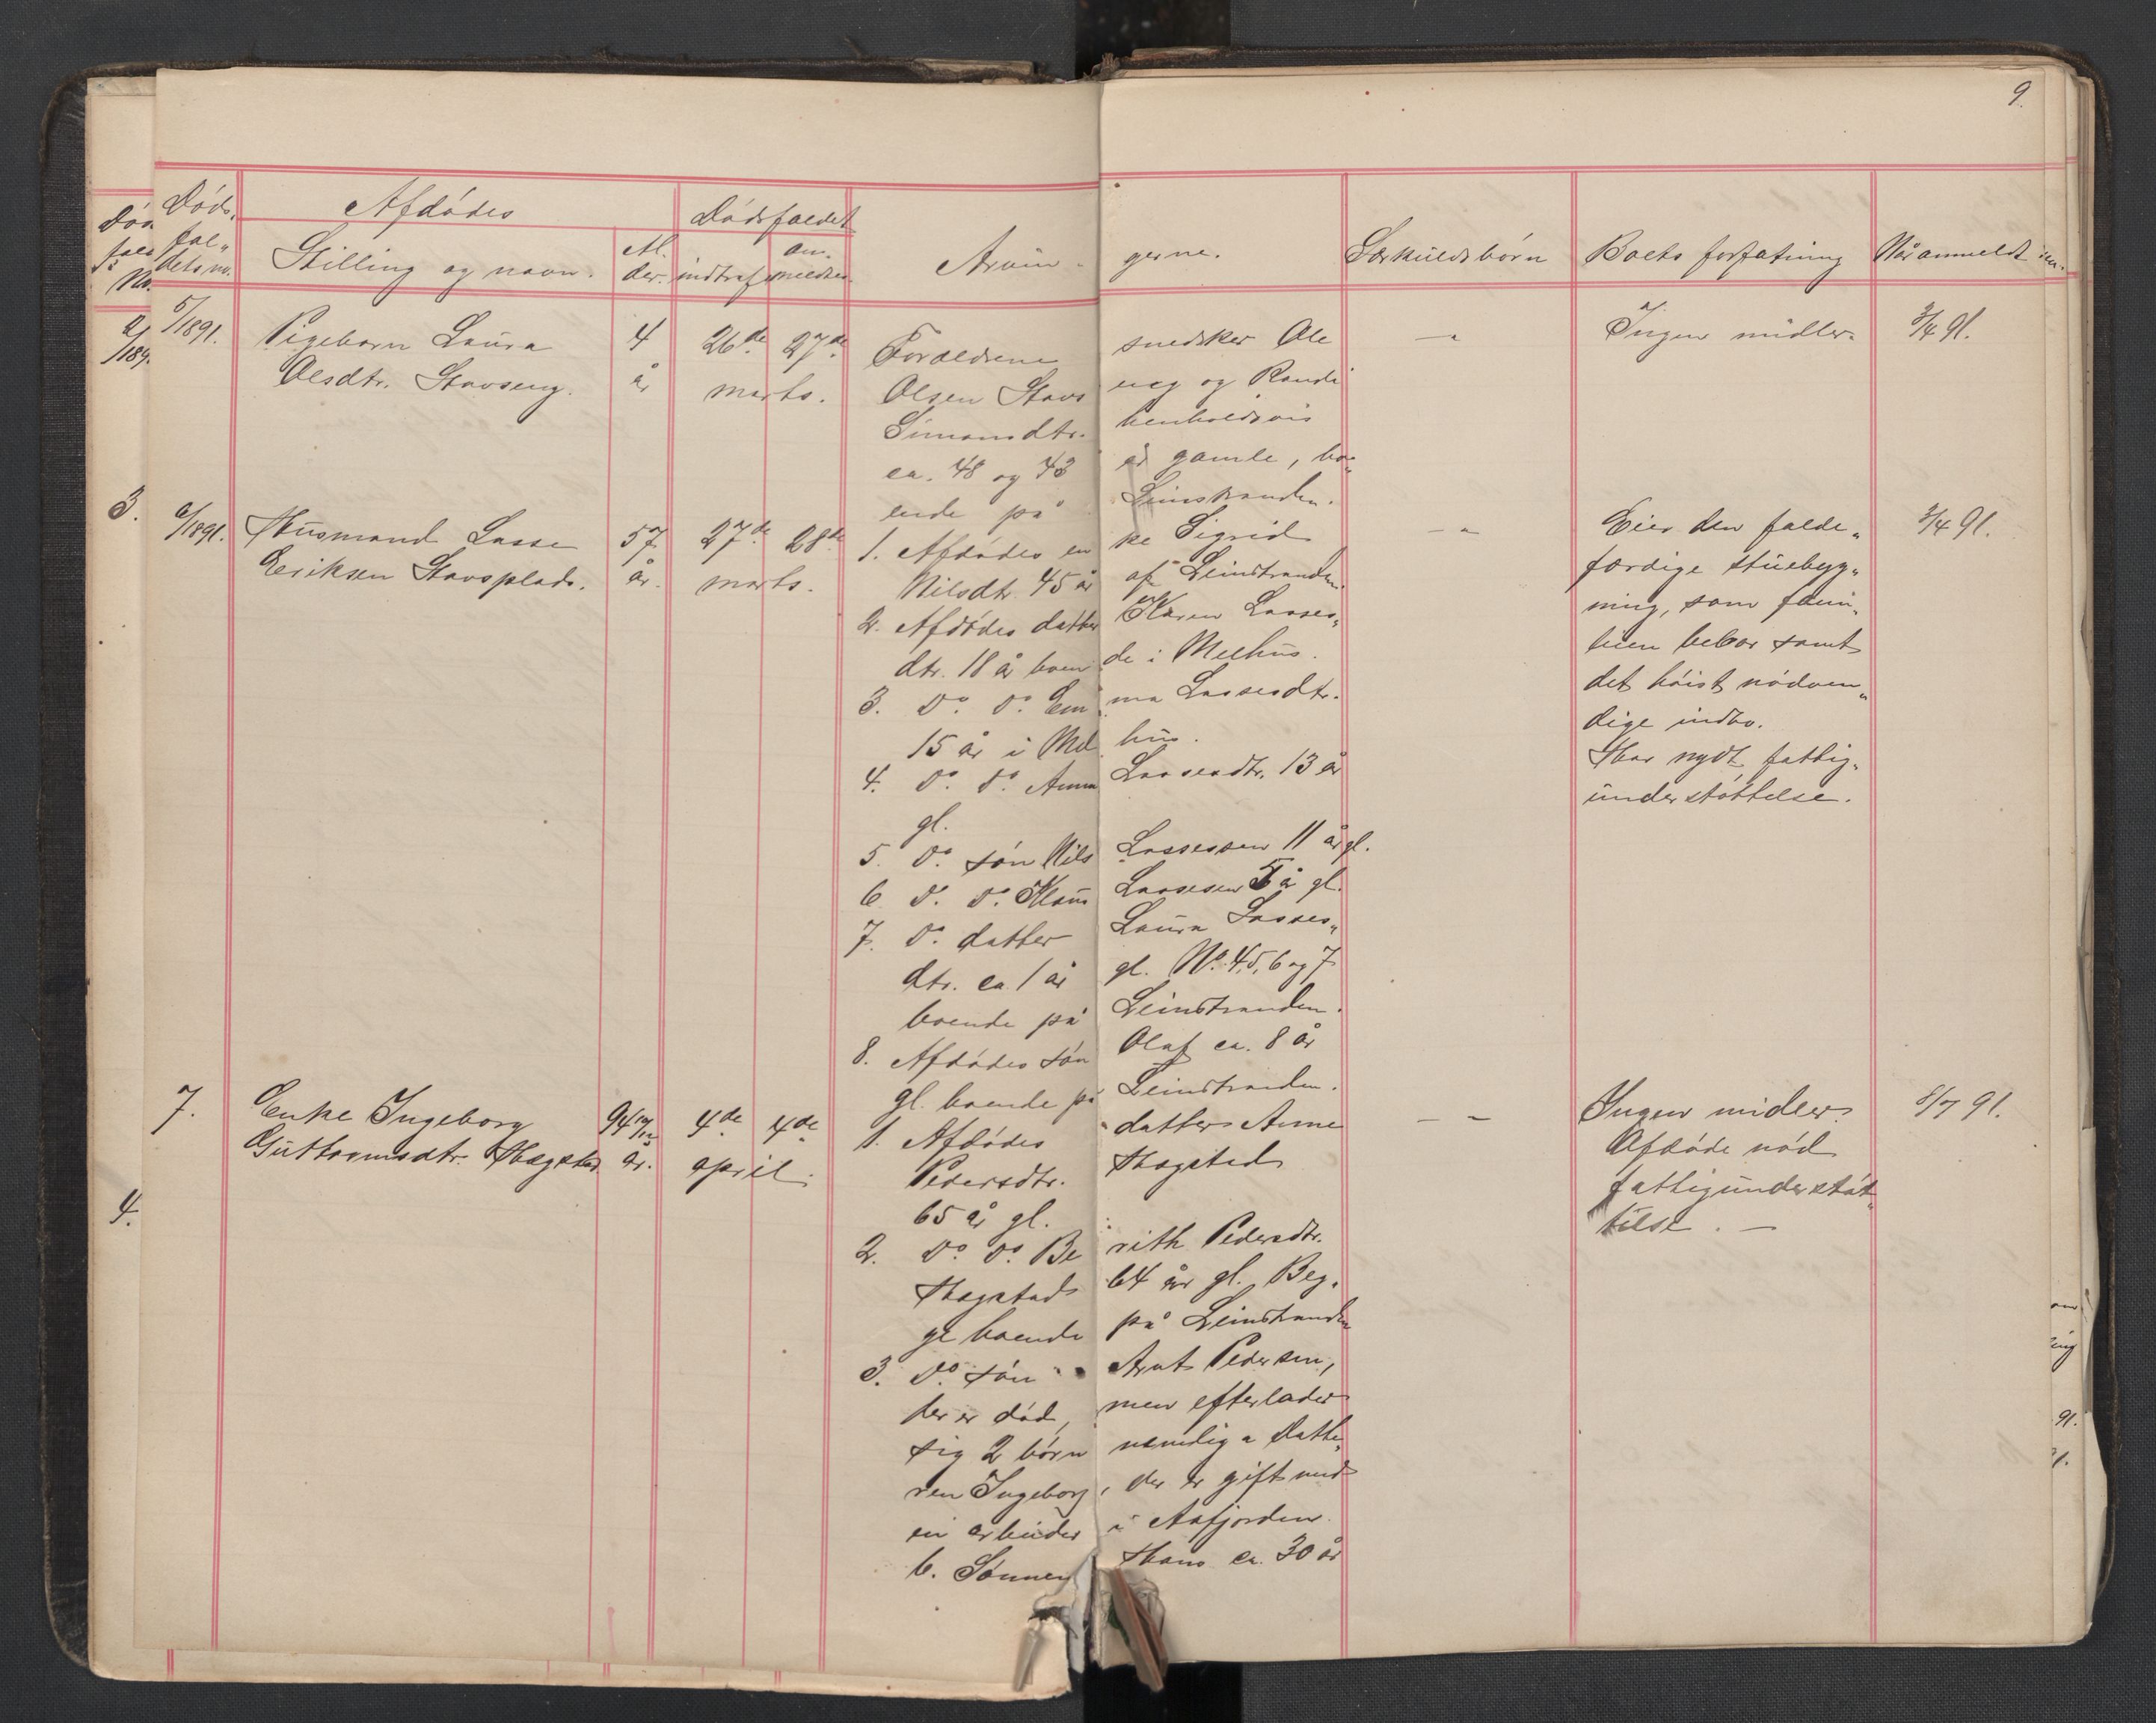 9.
Døds-
fal-
dets no.
Afdødes
Stilling og navn.
Al-
der.
Dødsfaldet
indtraf
an-
meldtes
Arvin- gerne.
Særkuldsbørn
Boets forfatning
Når anmeldt
5/1891.
Pigebarn Laura
Olsdtr. Stavseng.
4
år
26de 27de
marts.
Forældrene snedker Ole
Olsen Stavs eng og Randi
Simonsdtr. henholdsvis
ca. 48 og 43 år gamle, bo„
ende på Leinstranden.
Ingen midler.
3/4 91.
6/1891.
Husmand Lasse
Eriksen Stavsplads.
57
år.
27de 28de
marts.
1. Afdødes en ke Sigrid
Nilsdtr. 45 år af Leinstranden.
2. Afdødes datter Karen Lasses„
dtr. 18 år boen de i Melhus.
3. Do. Do. Em ma Lassesdtr.
15 år i Mel hus.
4. Do. Do. Anna Lassesdtr. 13 år
gl.
5. Do. søn Nils Lassessen 11 år gl.
6. Do. Do. Klaus Lassesen 5 år gl.
7. Do. datter Laura Lasses„
dtr. ca. 1 år gl. No. 4, 5, 6 og 7
boende på Leinstranden.
8. Afdødes søn Olaf ca. 8 år
gl. boende på Leinstranden.
Eier den falde„
færdige stuebyg„
ning, som fami„
lien bebor samt
det høist nødven„
dige indbo.
Har nydt fattig„
understøttelse.
3/4 91.
7.
Enke Ingeborg
Guttormsdtr. Hagstad
94
år.
4de 4de
april.
1. Afdødes datter Anne
Pedersdtr. Hagstad
65 år gl.
2. Do. Do. Be rith Pedersdtr.
Hagstad 64 år gl. Beg„
ge boende på Leinstranden
3. Do. søn Arnt Pedersen,
der er død, men efterlader
sig 2 børn nemlig a Datte„
ren Ingeborg, der er gift med
en arbeider i Aafjorden.
b. Sønnen Hans ca. 30 år
Ingen midler.
Afdøde nød
fattigunderstøt„
telse. —
8/7 91.
3.
4.